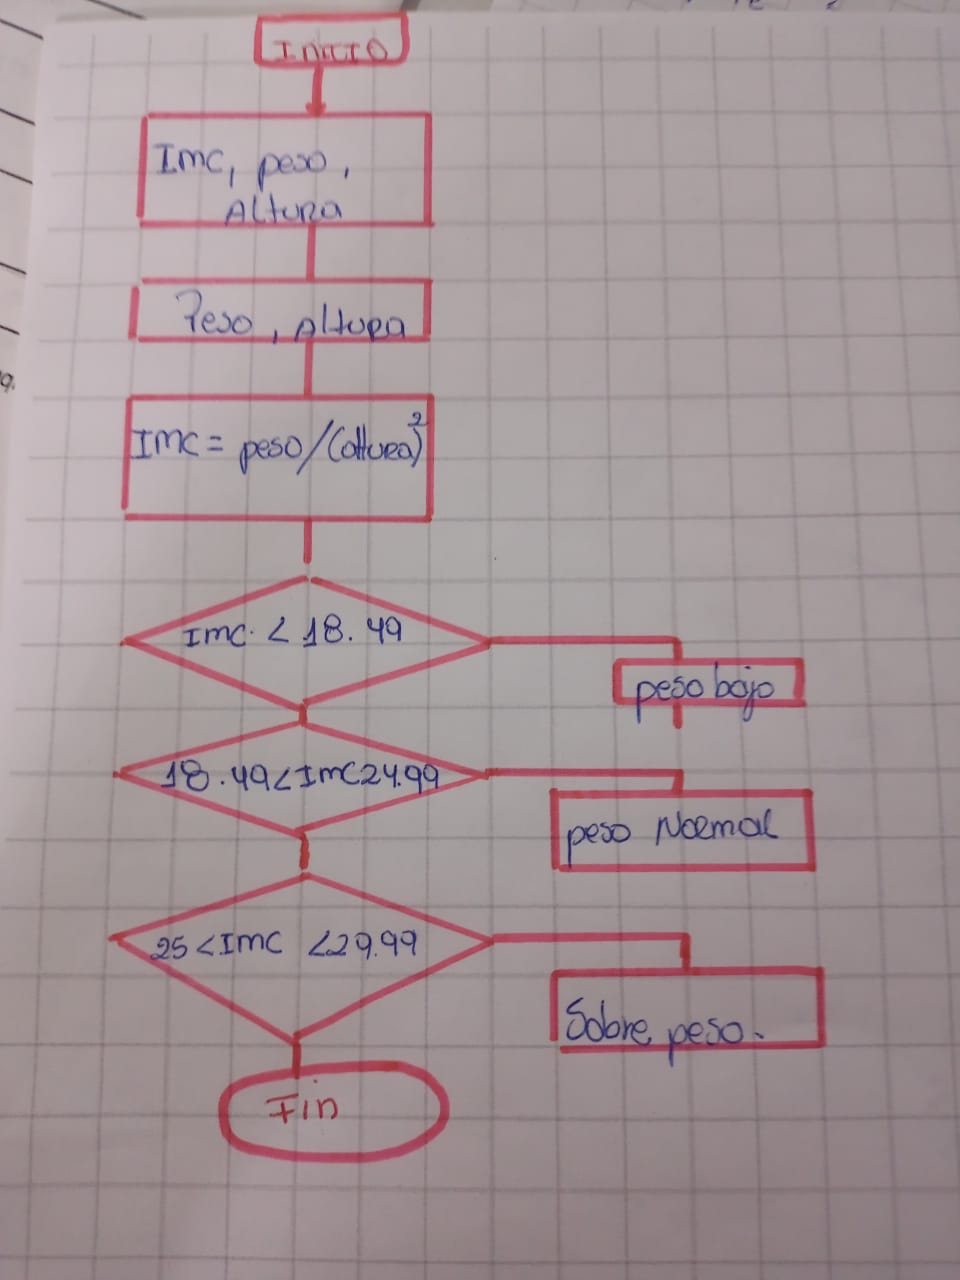 Inicio
Imc, peso,
Altura
Peso, Altura
Imc = peso/(altura)²
Imc. < 18.49
peso bajo
18.49<Imc24.99
peso Normal
25<Imc <29.99
Sobre peso.
Fin